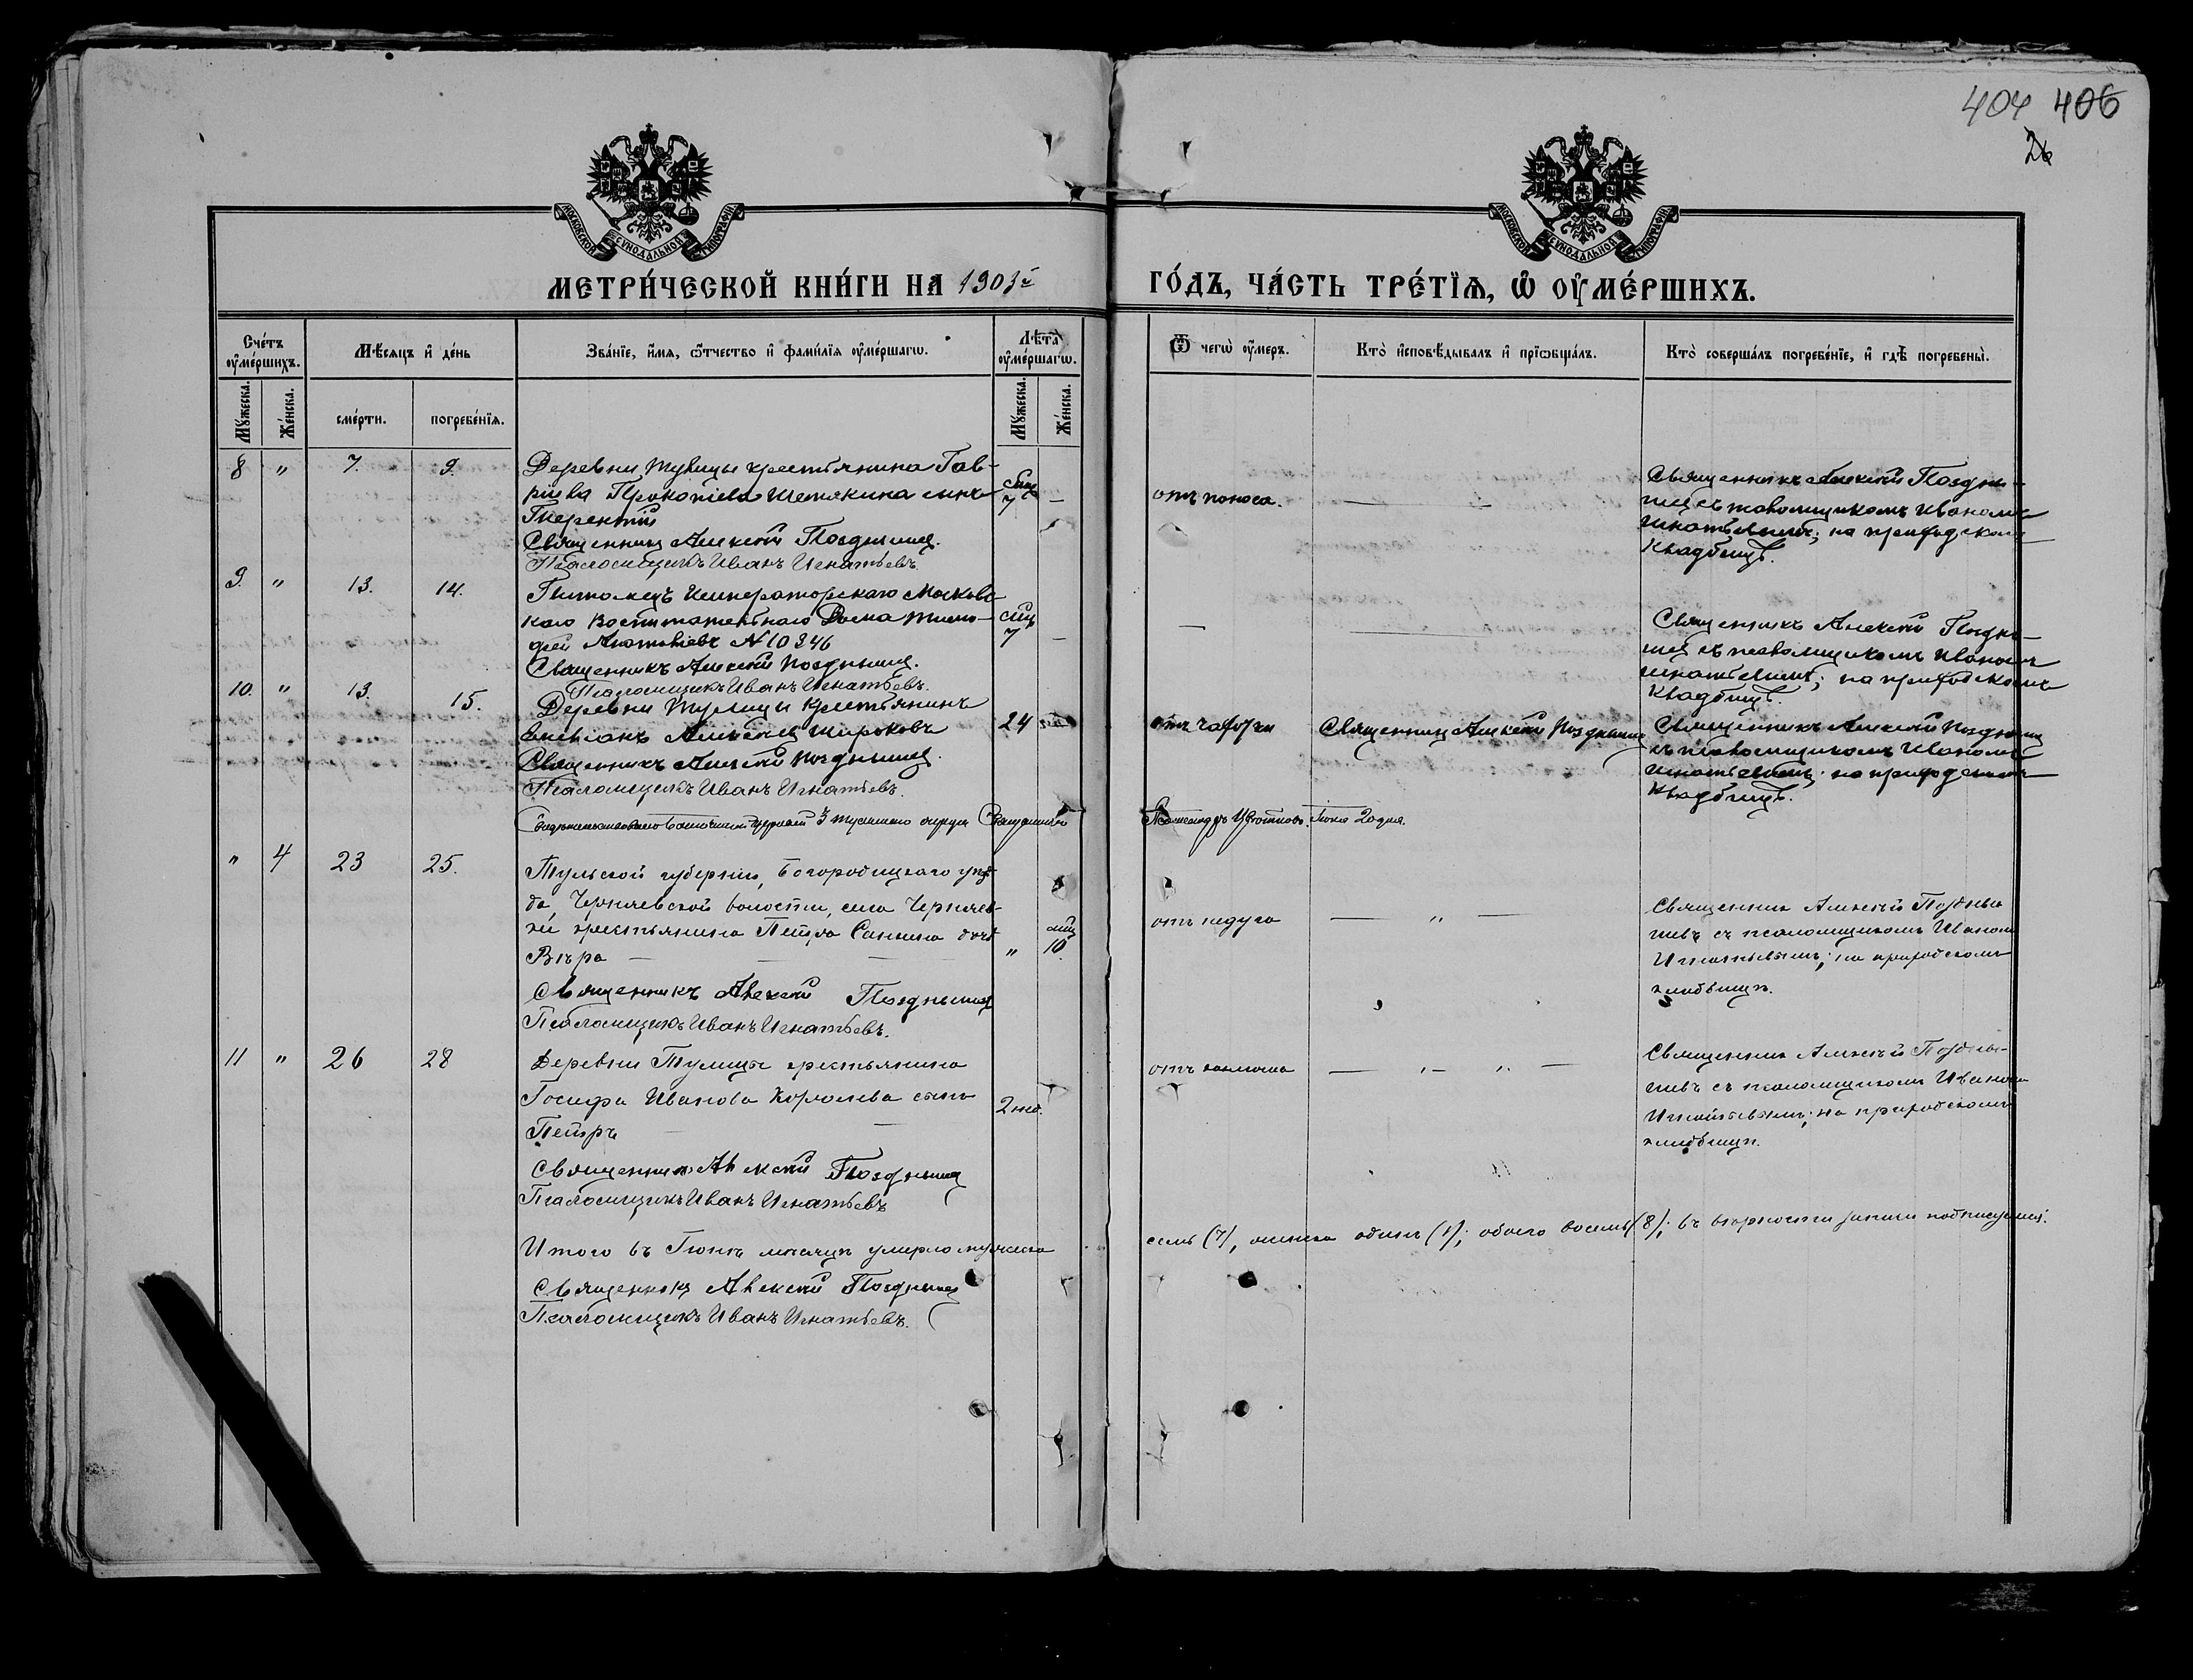 404 406
26
МОСКОВСКОЙ СУНОДАЛЬНОЙ ТИПОГРАФІИ
МОСКОВСКОЙ СУНОДАЛЬНОЙ ТИПОГРАФІИ
МЕТРИ́ЧЕСКОЙ КНИ́ГИ НА 1903й
ГО́ДЪ, ЧА́СТЬ ТРЕ́ТІѦ, Ѡ ОУ҆МЕ́РШИХЪ.
Сче́тъ оу҆ме́ршихъ.
Мѣ́сяцъ и҆ де́нь
Зва́нїе, и҆́мя, ѻ҆́тчество и҆ фами́лїя оу҆ме́ршагѡ.
Лѣта̀ оу҆ме́ршагѡ.
Ѿ чегѡ̀ оу҆́меръ.
Кто̀ и҆сповѣ́дывалъ и҆ прїѡбща́лъ.
Кто̀ соверша́лъ погребе́нїе, и҆ гдѣ̀ погребены̀.
Мꙋ́жеска.
Же́нска.
сме́рти.
погребе́нїя.
Мꙋ́жеска.
Же́нска.
8 " 7. 9.
Деревни Тулицы крестьянина Гав-
ріила Прокопіева Шетякина сынъ
Терентій
Священникъ Алексій Позднышевъ.
Псаломщикъ Иванъ Игнатьевъ.
мѣс 7 —
отъ поноса.
Священникъ Алексій Поздны-
шевъ съ псаломщикомъ Иваномъ
Игнатьевымъ; на приходскомъ
кладбищѣ.
9. " 13. 14.
Питомецъ Императорскаго Московс
каго Воспитательнаго Дома Тимо-
фей № 10346
Священникъ Алексій Позднышевъ.
Псаломщикъ Иванъ Игнатьевъ.
мѣс 7 —
—
Священникъ Алексій Поздны-
шевъ съ псаломщикомъ Иваномъ
Игнатьевымъ; на приходскомъ
кладбищѣ.
10. " 13. 15.
Деревни Тулицы крестьянинъ
Алексѣевъ Широковъ
Священникъ Алексій Позднышевъ.
Псаломщикъ Иванъ Игнатьевъ.
24
отъ чахотки
Священникъ Алексій Позднышевъ
Священникъ Алексій Позднышевъ
съ псаломщикомъ Иваномъ
Игнатьевымъ; на приходскомъ
кладбищѣ.
Свидѣтельствовалъ Благочинный церквей 3 Тульскаго округа Священникъ
Александръ Цвѣтковъ. Іюня 20 дня.
" 4 23 25.
Тульской губерніи, Богородицкаго уѣз-
да, Черняевской волости, села Черняев-
ки крестьянина Петра Санкина дочь
Вѣра
Священникъ Алексій Позднышевъ
Псаломщикъ Иванъ Игнатьевъ.
" мѣс 10.
отъ недуга
— " —
Священникъ Алексѣй Поздны
шевъ съ псаломщикомъ Иваномъ
Игнатьевымъ; на приходскомъ
кладбищѣ.
11 " 26 28
Деревни Тулицы крестьянина
Іосифа Иванова Королева сынъ
Петръ
Священникъ Алексій Позднышевъ
Псаломщикъ Иванъ Игнатьевъ
2 нед.
отъ кашля
Священникъ Алексѣй Поздны-
шевъ съ псаломщикомъ Иваномъ
Игнатьевымъ; на приходскомъ
кладбищѣ.
Итого въ Іюнѣ мѣсяцѣ умерло мужеска
семь (7), женска одинъ (1); обоего восемь (8); въ вѣрности записи подписуемся:
Священникъ Алексій Позднышевъ
Псаломщикъ Иванъ Игнатьевъ.